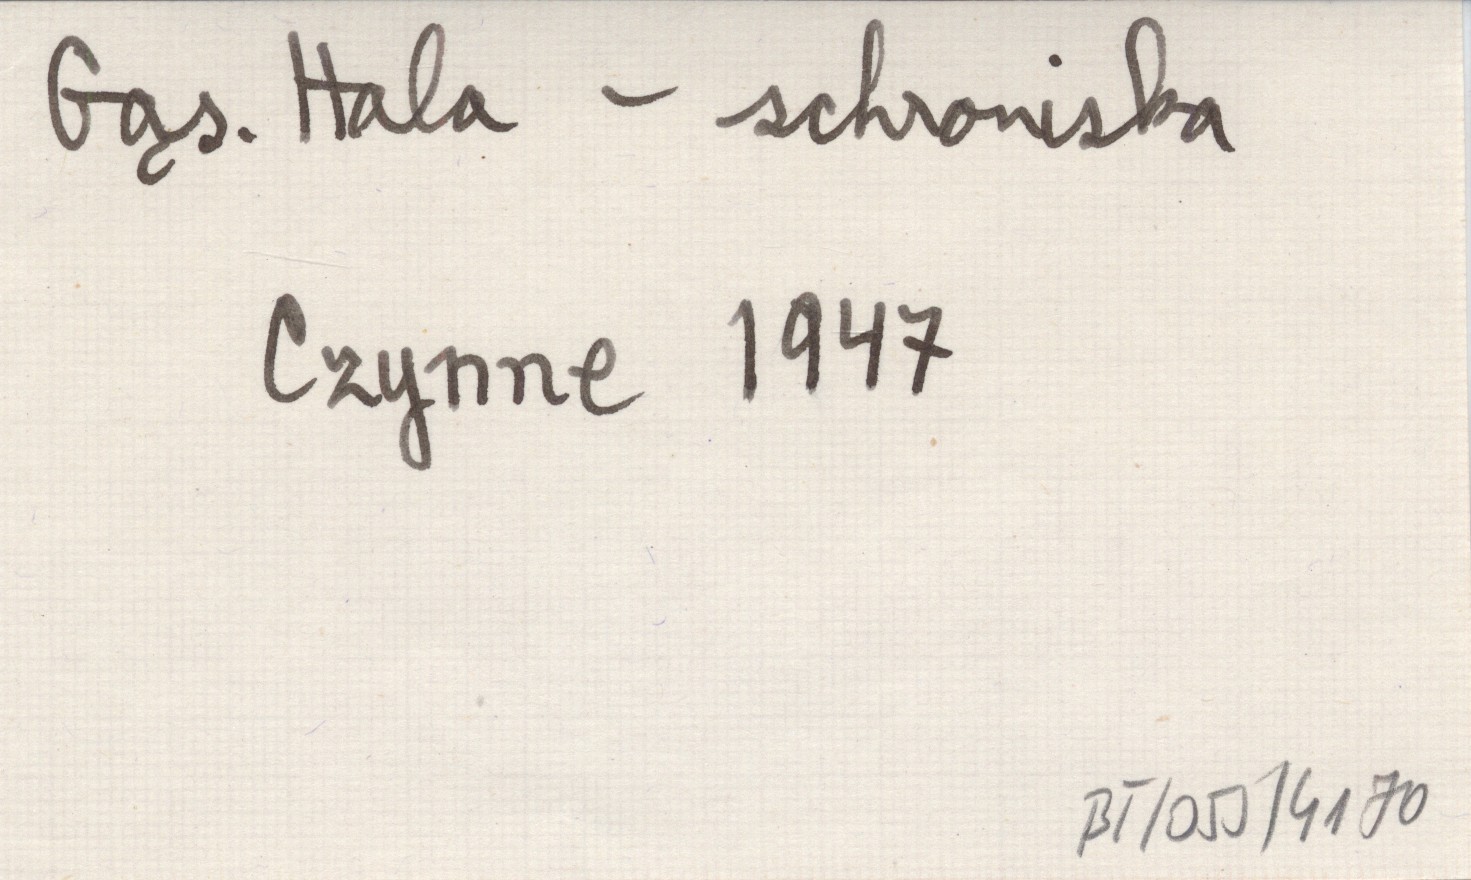 Gąs. Hala - schroniska
Czynne 1947
BT/OJJ/4170